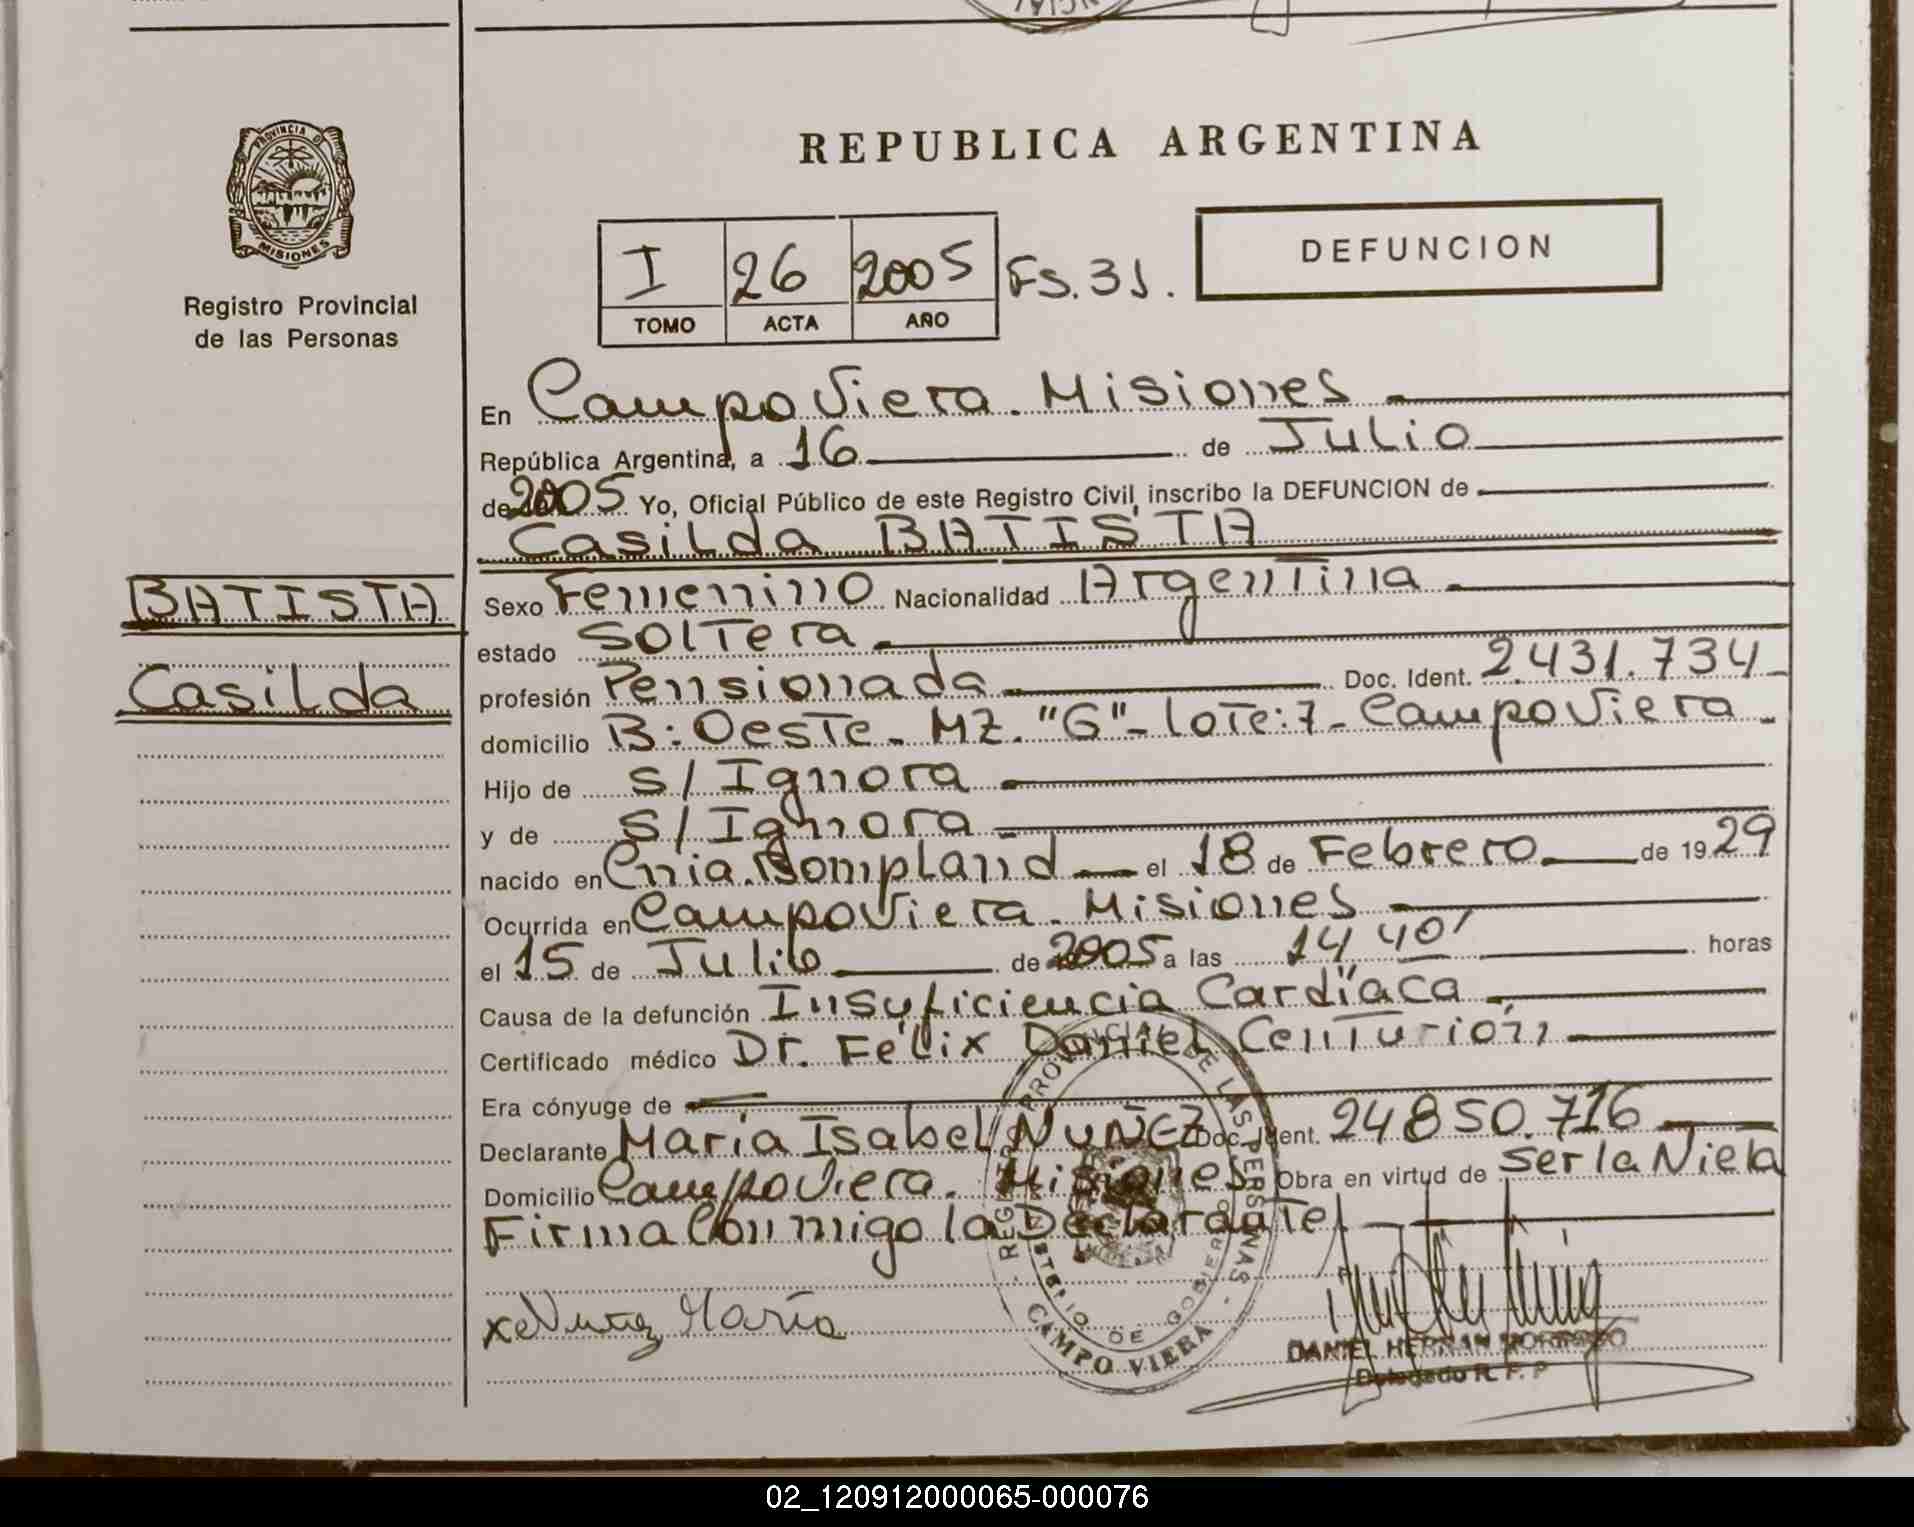 PROVINCIA D
MISIONES
Registro Provincial
de las Personas
REPUBLICA ARGENTINA
I 26 2005 Fs. 31.
TOMO ACTA AÑO
DEFUNCION
En Campo Viera. Misiones
República Argentina, a 16 de Julio
de 2005 Yo, Oficial Público de este Registro Civil, inscribo la DEFUNCION de
Casilda BATISTA
BATISTA
Casilda
Sexo Femenino Nacionalidad Argentina
estado Soltera
profesión Pensionada Doc. Ident. 2.431.734
domicilio B: Oeste - MZ. "G" - lote: 7 - Campo Viera -
Hijo de s/ Ignora
y de s/ Ignora
nacido en Cnia. Bompland el 18 de Febrero de 1929
Ocurrida en Campo Viera. Misiones
el 15 de Julio de 2005 a las 14 40' horas
Causa de la defunción Insuficiencia Cardíaca
Certificado médico Dr. Félix Daniel Centurión
Era cónyuge de
Declarante María Isabel NUÑEZ Doc. Ident. 24850.716
Domicilio Campo Viera. Misiones Obra en virtud de ser la Nieta
Firma Conmigo la Declarante
REGISTRO PROVINCIAL DE LAS PERSONAS
MINISTERIO DE GOBIERNO
CAMPO VIERA
x Nuñez María
DANIEL HERNAN
Delegado R. F. P
02_120912000065-000076